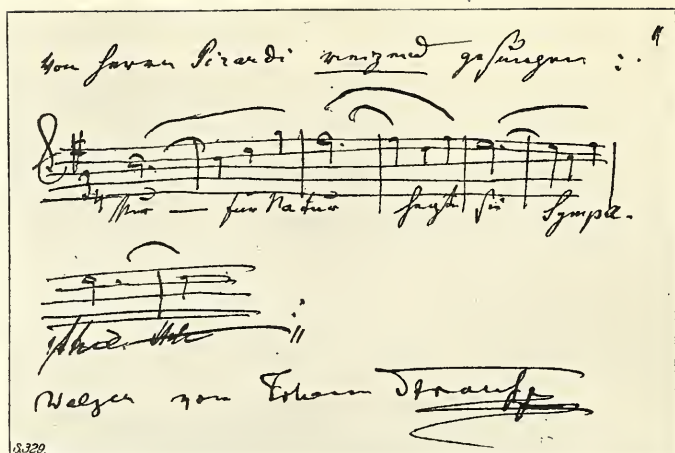 Von Herrn Girardi reizend gesungen :
Nur — für Natur hegte sie Sympa-
thie
Walzer von Johann Strauss
S.329.